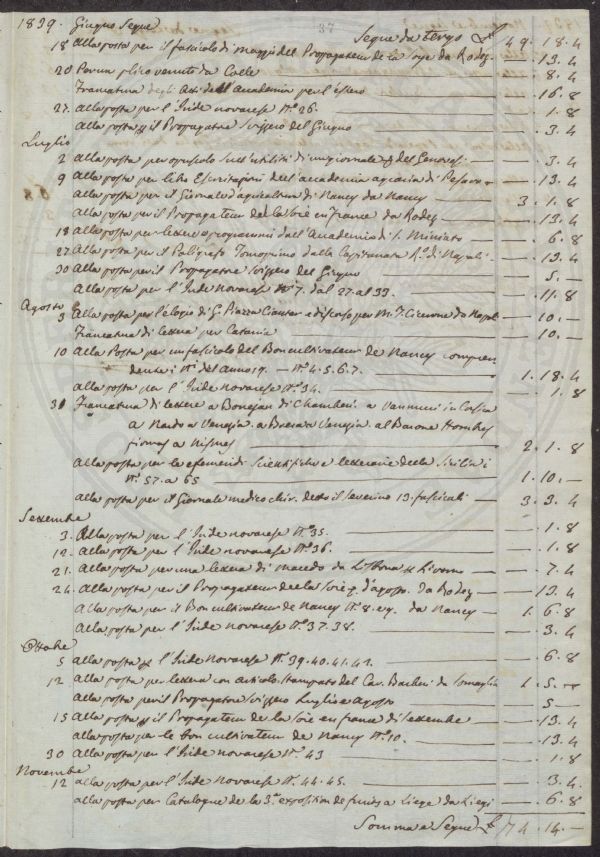 1839. Giugno Segue
37
Segue da tergo £ 49.18.4
18 Alla posta per il fascicolo di maggio del Propagateur de la soye da Rodez — .13.4
20 Per un plico venuto da Colle — .8.4
Francatura degli Atti dell'Accademia per l'estero — .16.8
27. Alla posta per l'Iride novarese N.° 26. — .1.8
Alla posta p il Propagatore Svizzero del Giugno — .3.4
Luglio
2 Alla posta per opuscolo sull'utilità di un giornale p del Genovesi — .3.4
9 Alla posta per libro Esercitazioni dell'accademia agraria di Pesaro — .13.4
Alla posta per il Giornale d'agricoltura di Nancy da Nancy — 3.1.8
Alla posta per il Propagateur de la Soie en France da Rodez — .13.4
18 Alla posta per lettera e programmi dall'Accademia di S. Miniato — .6.8
27 Alla posta per il Poligrafo Tomoprimo dalla Capitanata R.° di Napoli — .13.4
30 Alla posta per il Propagatore svizzero del Giugno — .5.—
Alla posta per l'Iride Novarese N.° 7. dal 27. al 33. — .11.8
Agosto
3 Alla posta per l'elogio di G. Piazza e discorso per M. T. Cicerone da Napoli — 10.—
Francatura di lettera per Catania — 10.—
10 Alla Posta per un fascicolo del Bon cultivateur de Nancy compren
dente i N.i del anno 19. — N.° 4. 5. 6. 7. — 1.18.4
alla posta per l'Iride novarese N.° 34. — .1.8
31 Francatura di lettere a Bonejean di Chamberì. a Vannucci in Corsica
a Nardo a Venezia. a Brera a Venezia. al Barone Hombres
firmas a Nismes — 2.1.8
Alla posta per le efemeridi Scientifiche e letterarie della Sicilia i
N.i 57. a 65 — 1.10.—
Alla posta per il Giornale medico chir. detto il severino 13. fascicoli — 3.3.4
Settembre
3. Alla posta per l'Iride novarese N.° 35. — .1.8
12. Alla posta per l'Iride novarese N.° 36. — .1.8
21. Alla posta per una lettera di Macedo da Lisbona p Livorno — .7.4
24. Alla posta per il Propagateur de la Soie p. d'agosto. da Rodez — .13.4
Alla posta per il Bon cultivateur de Nancy N.° 8. e 9. da Nancy — 1.6.8
Alla posta per l'Iride novarese N.° 37. 38. — .3.4
Ottobre
5 Alla posta p l'Iride Novarese N.° 39. 40. 41. 42. — .6.8
12 Alla posta per lettera con articolo stampato del Cav. Barbieri da Somaglia — 1.5.—
Alla posta per il Propagatore Svizzero Luglio e Agosto — 5.—
15 Alla posta p il Propagateur de la Soie en france di Settembre — .13.4
Alla posta per le bon cultivateur de Nancy N.° 10. — .13.4
30 Alla posta per l'Iride novarese N.° 43 — .1.8
Novembre
12 alla posta per l'Iride Novarese N.° 44. 45. — .3.4
alla posta per Catalogue de la 3.e exposition de fruits a Liege da Liegi — .6.8
Somma e Segue £ 74.14.—